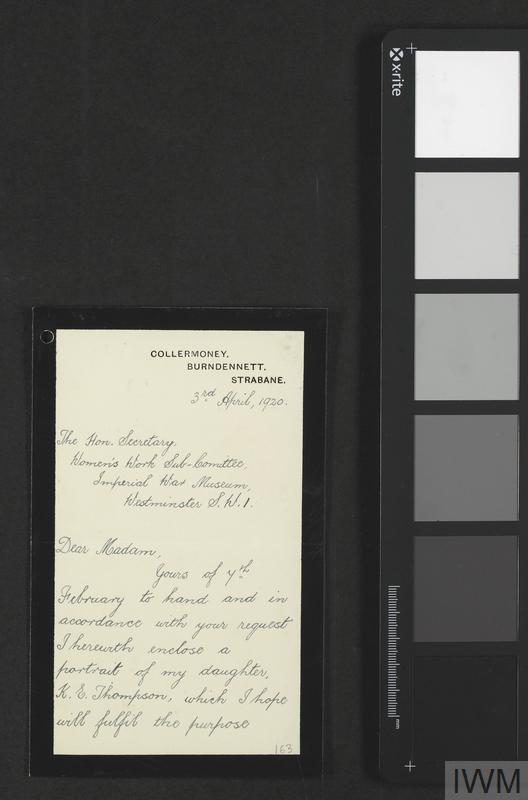 x-rite
COLLERMONEY,
BURNDENNETT,
STRABANE.
3rd April, 1920.
The Hon. Secretary,
Women's Work Sub-Comittee,
Imperial War Museum,
Westminster S.W.1.
Dear Madam,
Yours of 7th
February to hand and in
accordance with your request
I herewith enclose a
portrait of my daughter,
K. E. Thompson, which I hope
will fulfil the purpose
163
mm
IWM